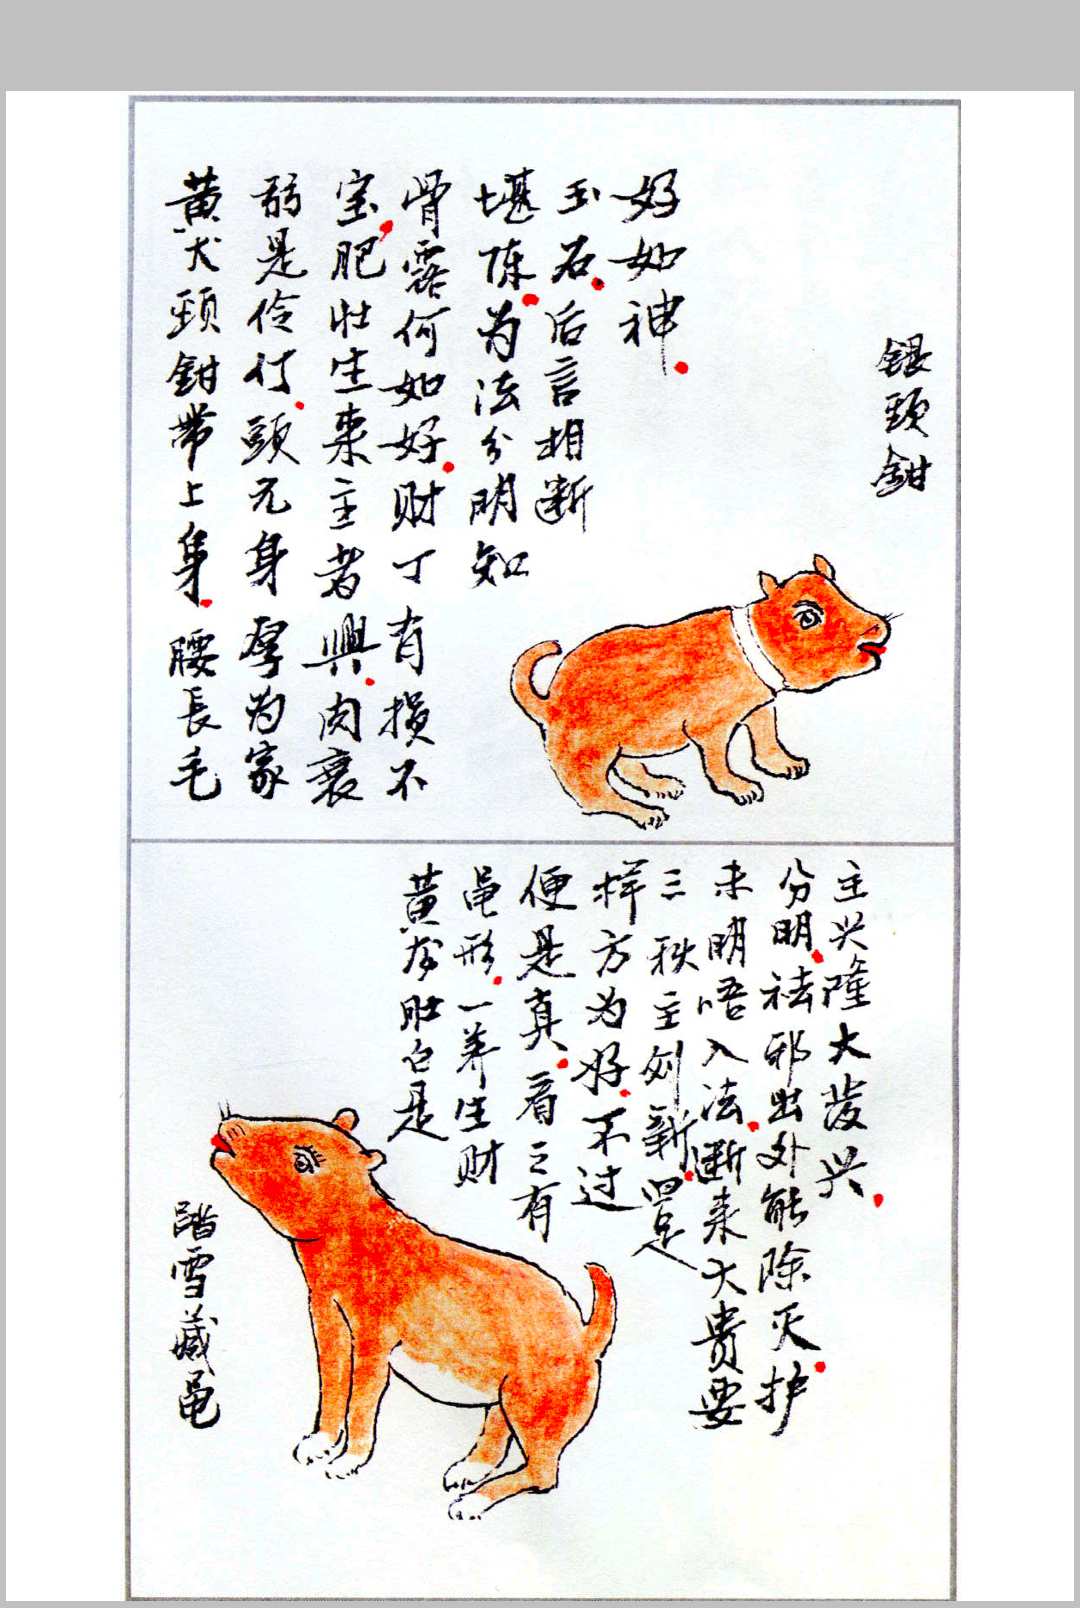 银頸鉗
黄犬頸鉗带上身。腰長毛
弱是伶仃。頭元身厚为家
宝。肥壮生来主者興。肉衰
骨露何如好。财丁有损不
堪陈。为法分明知
玉石。后言相断
好如神。
踏雪藏黾
黄身肚白是
黾形。一养生财
便是真。看三有
样方为好。不过
三秋主创新。四足
未明唔入法。断来大貴要
分明。祛邪出外能除灭。护
主兴隆大发兴。